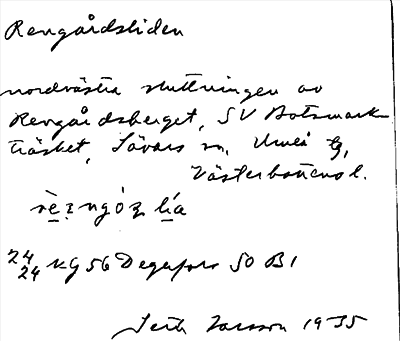 Rengårdsliden
nordvästra sluttningen av
Rengårdsberget, SV Botsmark-
träsket, Sävars sn, Umeå tg,
Västerbottens l.
24
24 KG 56 Degerfors SO B1
Seth Larsson 1935